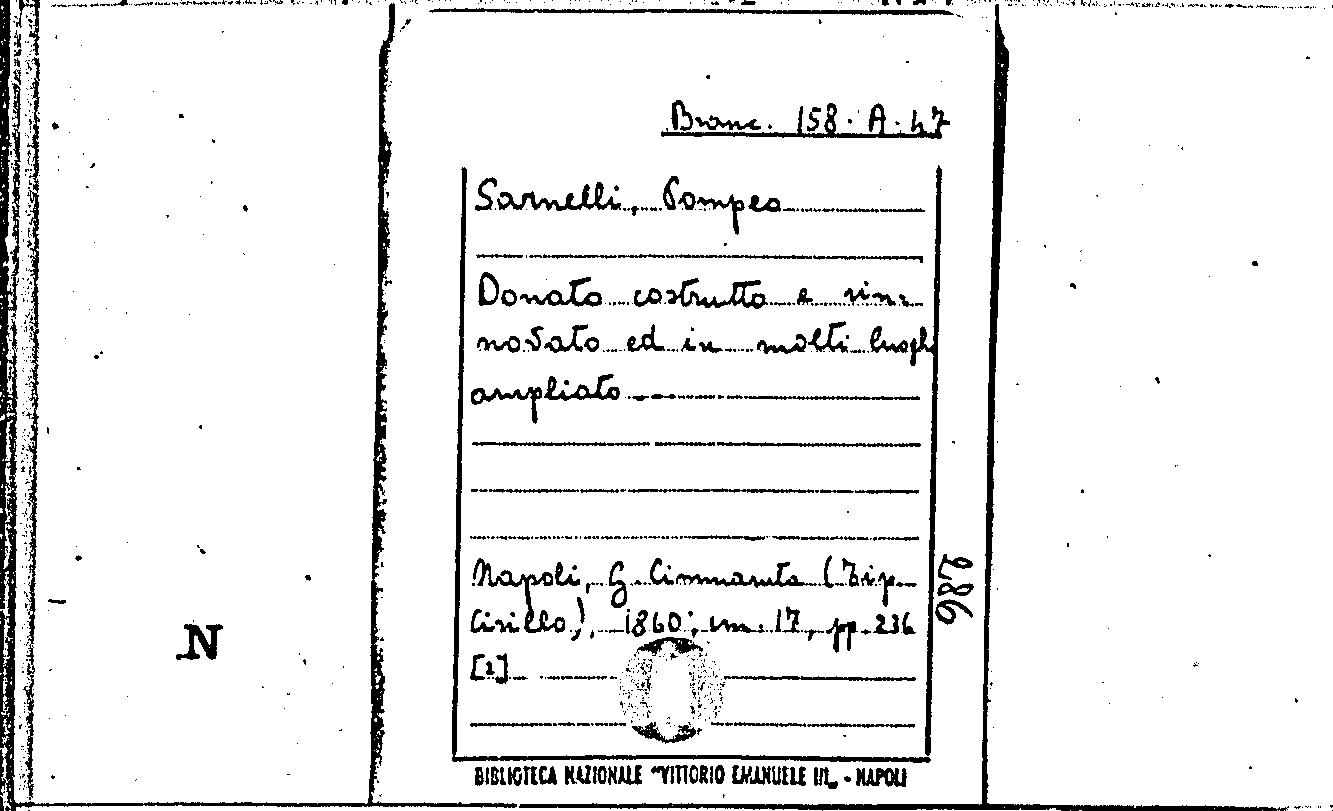 Branc. 158. A. 47
Sarnelli, Pompeo
Donato costrutto e rin-
novato ed in molti luogh
ampliato ---
Napoli, G. Cimmaruta (Tip.
Cirillo), 1860; cm. 17, pp. 236
[2]
286
N
BIBLIOTECA NAZIONALE "VITTORIO EMANUELE III„ - NAPOLI